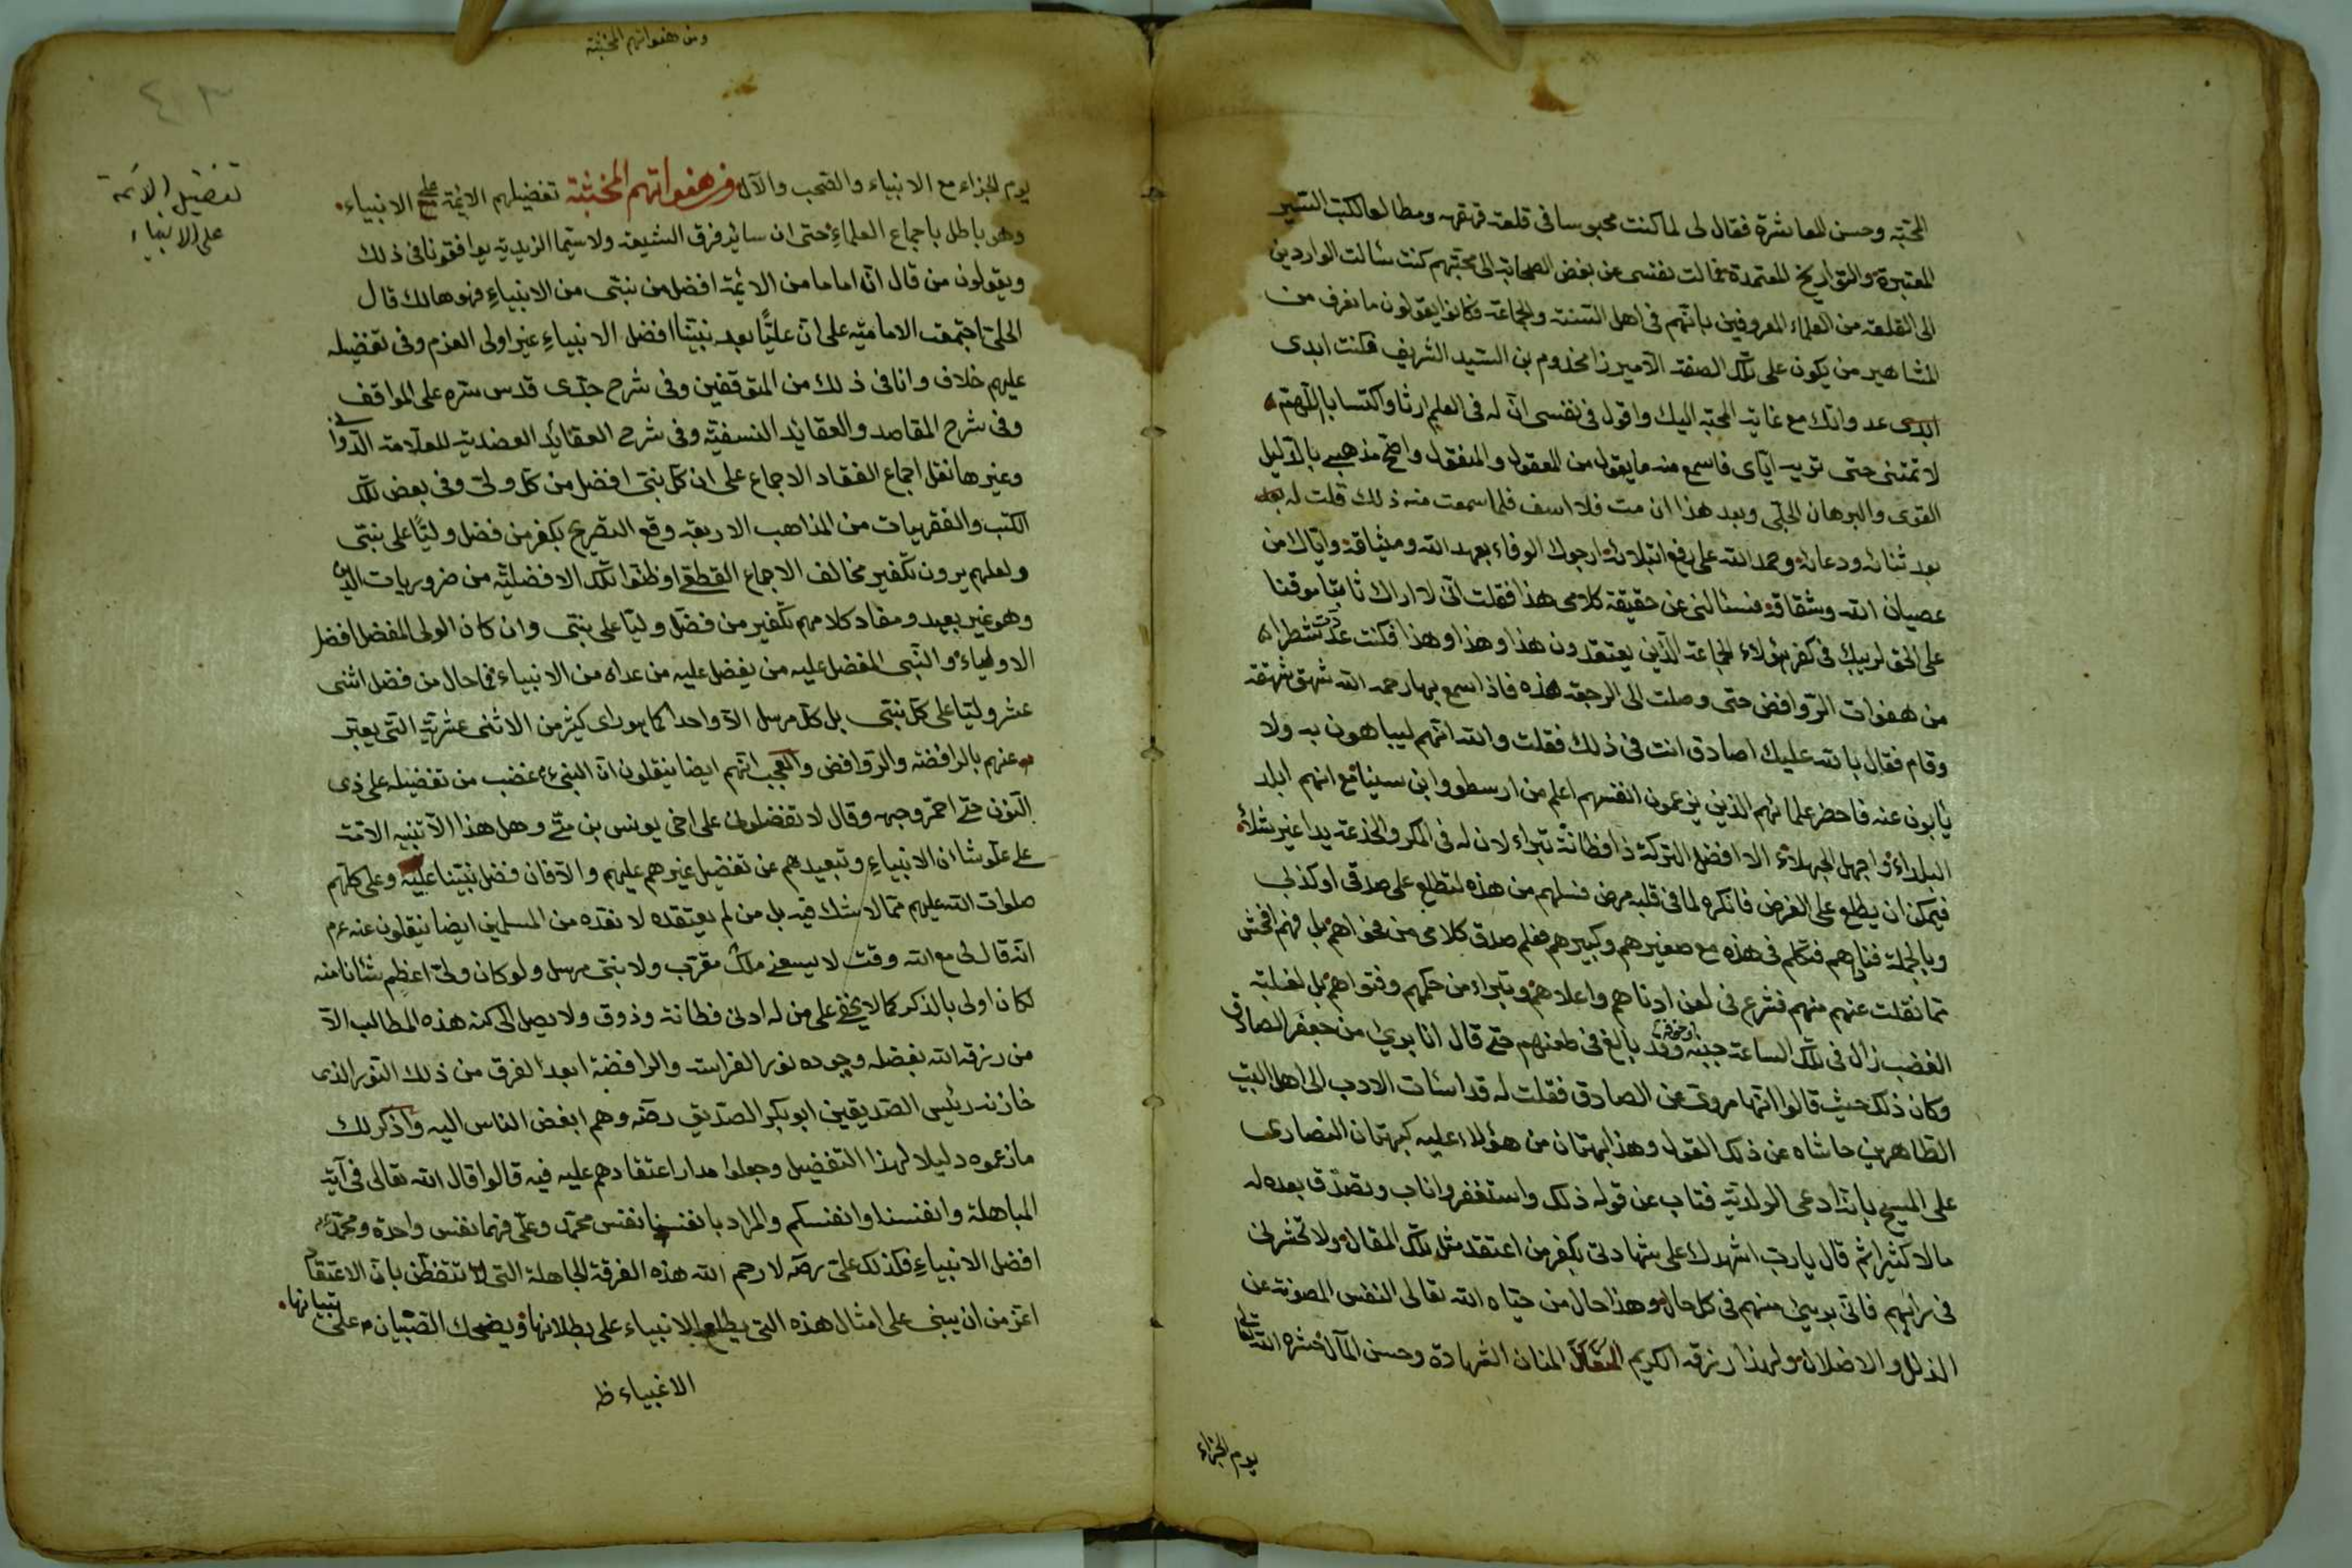 المحبة وحسن المعاشرة فقال لى لما كنت محبوسا فى قلعة قهقهه ومطالعا لكتب السير
المعتبرة والتواريخ المعتمدة فمالت نفسى عن بغض الصحابة الى محبتهم كنت سئالت الواردين
الى القلعة من العلماء المعروفين بانهم فى اهل السنة والجماعة فكانوا يقولون ما نعرف من
المشاهير من يكون على تلك الصفة الا ميرزا مخدوم بن السيد الشريف فكنت ابدى
عدوانك مع غاية المحبة اليك واقول فى نفسى ان له فى العلم ارثا واكتسابا اللهم
لا تمتنى حتى تريه اياى فاسمع منه ما يقول من المعقول والمنقول واضح مذهبى بالدليل
القوى والبرهان الجلى وبعد هذا ان مت فلا اسف فلما سمعت منه ذلك قلت له
بعد ثنائه ودعائه وحمد الله على رفع ابتلائه ارجوك الوفاء بعهد الله وميثاقه واياك من
عصيان الله وشقاقه فسئالنى عن حقيقة كلامى هذا فقلت انى لا اراك ثابتا موقنا
على الحق لريبك فى كفر هؤلاء الجماعة الذين يعتقدون هذا وهذا وهذا فكنت عددت شطرا
من هفوات الروافض حتى وصلت الى الرجعة هذه فاذا سمع بها رحمه الله شهق شهقة
وقام فقال بالله عليك اصادق انت فى ذلك فقلت والله انهم ليباهون به ولا
يأبون عنه فاحضر علمائهم الذين يزعمون انفسهم اعلم من ارسطو وابن سينا مع انهم ابلد
البلداء واجهل الجهلاء الا افضل التركة ذا فطانة تبراء لان له فى المكر والخدعة يدا غير شلاء
فيمكن ان يطلع على الغرض فانكره لما فى قلبه مرض فسلهم من هذه لتطلع على صدقى او كذبى
وبالجملة فناداهم فتكلم فى هذه مع صغيرهم وكبيرهم فعلم صدق كلامى من فحواهم بل فهم افحش
مما نقلت عنهم منهم فشرع فى لعن ادناهم واعلاهم وتبراء من حكمهم وفتواهم بل لغلبة
الغضب زال فى تلك الساعة جبنه وخوفه وقد بالغ فى طعنهم حتى قال انا برئ من جعفر الصادق
وكان ذلك حيث قالوا انها مروى عن الصادق فقلت له قد اسئات الادب الى اهل البيت
الطاهرين حاشاه عن ذلك القول وهذا بهتان من هؤلاء عليه كبهتان النصارى
على المسيح بانه ادعى الولدية فتاب عن قوله ذلك واستغفر واناب وتصدق بعده له
مالا كثيرا ثم قال يا رب اشهدك على شهادتى بكفر من اعتقد مثل تلك المقال ولا تحشرنى
فى زمرتهم فانى برئ منهم فى كل حال وهذا حال من حياه الله تعالى النفس المصونة عن
الذلل والاضلال ولهذا رزقه الكريم المنان الشهادة وحسن المآل حشره الله تعالى
يوم الجزاء
ومن هفواتهم المخبثة
٤٠٣
تفضيل الائمة
على الانبياء
يوم الجزاء مع الانبياء والصحب والآل ومن هفواتهم المخبثة تفضيلهم الائمة على الانبياء
وهو باطل باجماع العلماء حتى ان سائر فرق الشيعة ولا سيما الزيدية يوافقونا فى ذلك
ويقولون من قال ان اماما من الائمة افضل من نبى من الانبياء فهو هالك قال
الحلى اجتمعت الامامية على ان عليا بعد نبينا افضل الانبياء غير اولى العزم وفى تفضيله
عليهم خلاف وانا فى ذلك من المتوقفين وفى شرح جدى قدس سره على المواقف
وفى شرح المقاصد والعقائد النسفية وفى شرح العقائد العضدية للعلامة الدوانى
وغيرها نقل اجماع انعقاد الاجماع على ان كل نبى افضل من كل ولى وفى بعض تلك
الكتب والفقهيات من المذاهب الاربعة وقع التصريح بكفر من فضل وليا على نبى
ولعلهم يرون تكفير مخالف الاجماع القطعى او ظنوا تلك الافضلية من ضروريات الدين
وهو غير بعيد ومفاد كلامهم تكفير من فضل وليا على نبى وان كان الولى المفضل افضل
الاولياء والنبى المفضل عليه من يفضل عليه من عداه من الانبياء فما حال من فضل اثنى
عشر وليا على كل نبى بل كل مرسل الا واحدا كما هو راى كثير من الاثنى عشرية التى يعبر
عنهم بالرافضة والروافض والعجب انهم ايضا ينقلون ان النبى غضب من تفضيله على ذى
النون حتى احمر وجهه وقال لا تفضلونى على اخى يونس بن متى وهل هذا الا تنبيه الامة
على علو شان الانبياء وتبعيدهم عن تفضيل غيرهم عليهم والا فان فضل نبينا عليه وعلى كلهم
صلوات الله عليهم مما لا شك فيه بل من لم يعتقده لا نعده من المسلمين ايضا ينقلون عنه عم
انه قال لى مع الله وقت لا يسعنى ملك مقرب ولا نبى مرسل ولو كان ولى اعظم شئانا منه
لكان اولى بالذكر كما لا يخفى على من له ادنى فطانة وذوق ولا يصل الى كنه هذه المطالب الا
من رزقه الله بفضله وجوده نور الفراسة والرافضة ابعد الفرق من ذلك النور الذى
خازنه رئيس الصديقين ابو بكر الصديق رضه وهم ابغض الناس اليه واذكر لك
ما زعموه دليلا لهذا التفضيل وجعلوا مدار اعتقادهم عليه فيه قالوا قال الله تعالى فى آية
المباهلة وانفسنا وانفسكم والمراد بانفسنا نفس محمد وعلى فهما نفس واحدة ومحمد
افضل الانبياء فكذلك على رضه لا رحم الله هذه الفرقة الجاهلة التى لا تتفطن بان الاعتقاد
اعز من ان يبنى على امثال هذه التى يطلع الانبياء على بطلانها ويضحك الصبيان على تبيانها
الاغبياء ظ